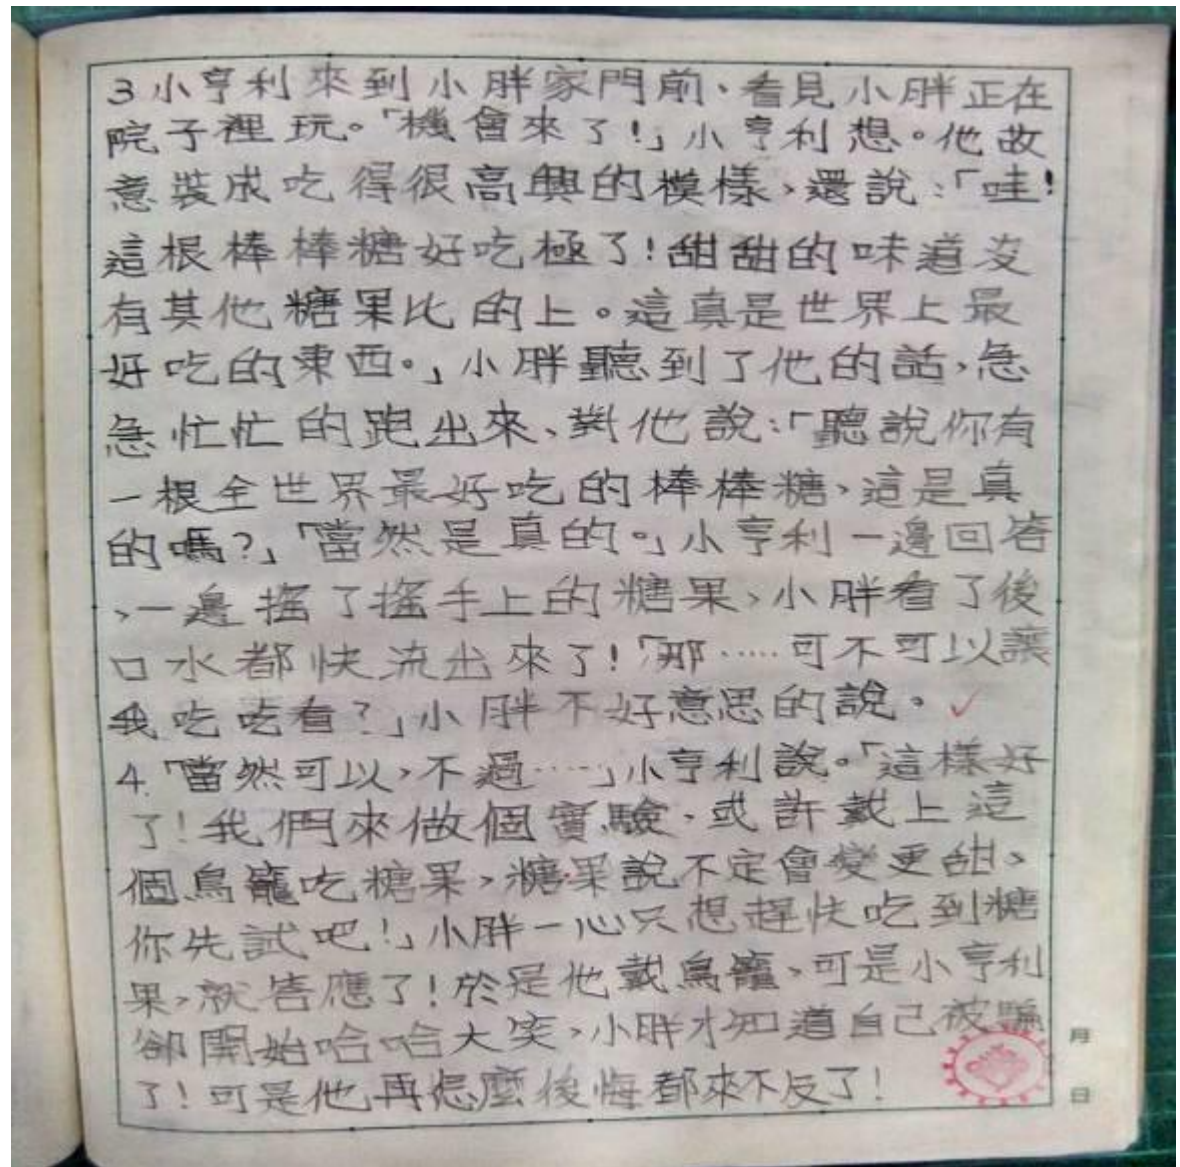 3小亨利來到小胖家門前、看見小胖正在
院子裡玩。「機會來了!」小亨利想。他故
意裝成吃得很高興的模樣,還說:「哇!
這根棒棒糖好吃極了!甜甜的味道沒
有其他糖果比的上。這真是世界上最
好吃的東西。」小胖聽到了他的話,急
急忙忙的跑出來、對他說:「聽說你有
一根全世界最好吃的棒棒糖,這是真
的嗎?」「當然是真的。」小亨利一邊回答
,一邊搖了搖手上的糖果,小胖看了後
口水都快流出來了!「那……可不可以讓
我吃吃看?」小胖不好意思的說。
4.「當然可以,不過……」小亨利說。「這樣好
了!我們來做個實驗,或許戴上這
個鳥籠吃糖果,糖果說不定會變更甜,
你先試吧!」小胖一心只想趕快吃到糖
果,就答應了!於是他戴鳥籠,可是小亨利
卻開始哈哈大笑,小胖才知道自己被騙
了!可是他再怎麼後悔都來不及了!
月
日